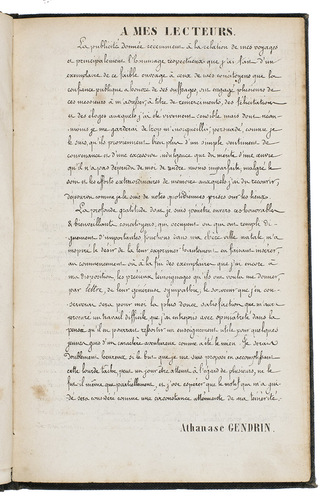 A MES LECTEURS.
La publicité donnée récemment à la relation de mes voyages
et principalement l'hommage respectueux que j'ai fait d'un
exemplaire de ce faible ouvrage à ceux de mes concitoyens que la
confiance publique a honorés de ses suffrages, ont engagé plusieurs de
ces messieurs à m'adresser, à titre de remerciements, des félicitations
et des éloges auxquels j'ai été vivement sensible mais dont néan-
moins je me garderai de trop m'enorgueillir, persuadé, comme je
le suis, qu'ils proviennent bien plus d'un simple sentiment de
convenance ou d'une excessive indulgence que du mérite d'une œuvre
qu'il n'a pas dépendu de moi de rendre moins imparfaite, malgré le
soin et les efforts extraordinaires de mémoire auxquels j'ai dû recourir,
dépourvu comme je le suis de notes quotidiennes prises sur les lieux.
La profonde gratitude dont je suis pénétré envers ces honorables
& bienveillants concitoyens, qui occupent ou qui ont rempli di-
gnement d'importantes fonctions dans ma chère ville natale m'a
inspiré le désir de la leur exprimer hautement en faisant insérer
au commencement où à la fin des exemplaires que j'ai encore à
ma disposition, les précieux témoignages qu'ils ont voulu me donner,
par lettre, de leur généreuse sympathie, le souvenir que j'en con-
serverai sera pour moi la plus douce satisfaction que m'aura
procuré un travail difficile que j'ai entrepris avec opiniâtreté dans la
pensée qu'il en pourrait résulter un enseignement utile pour quelques
jeunes gens d'un caractère aventureux comme a été le mien. Je serais
doublement heureux, si le but que je me suis proposé en accomplissant
cette lourde tâche, peut un jour être atteint à l'égard de plusieurs, ne le
fut-il même que partiellement, et j'ose espérer que le motif qui m'a gui-
dé sera considéré comme une circonstance atténuante de ma témérité.
Athanase GENDRIN.